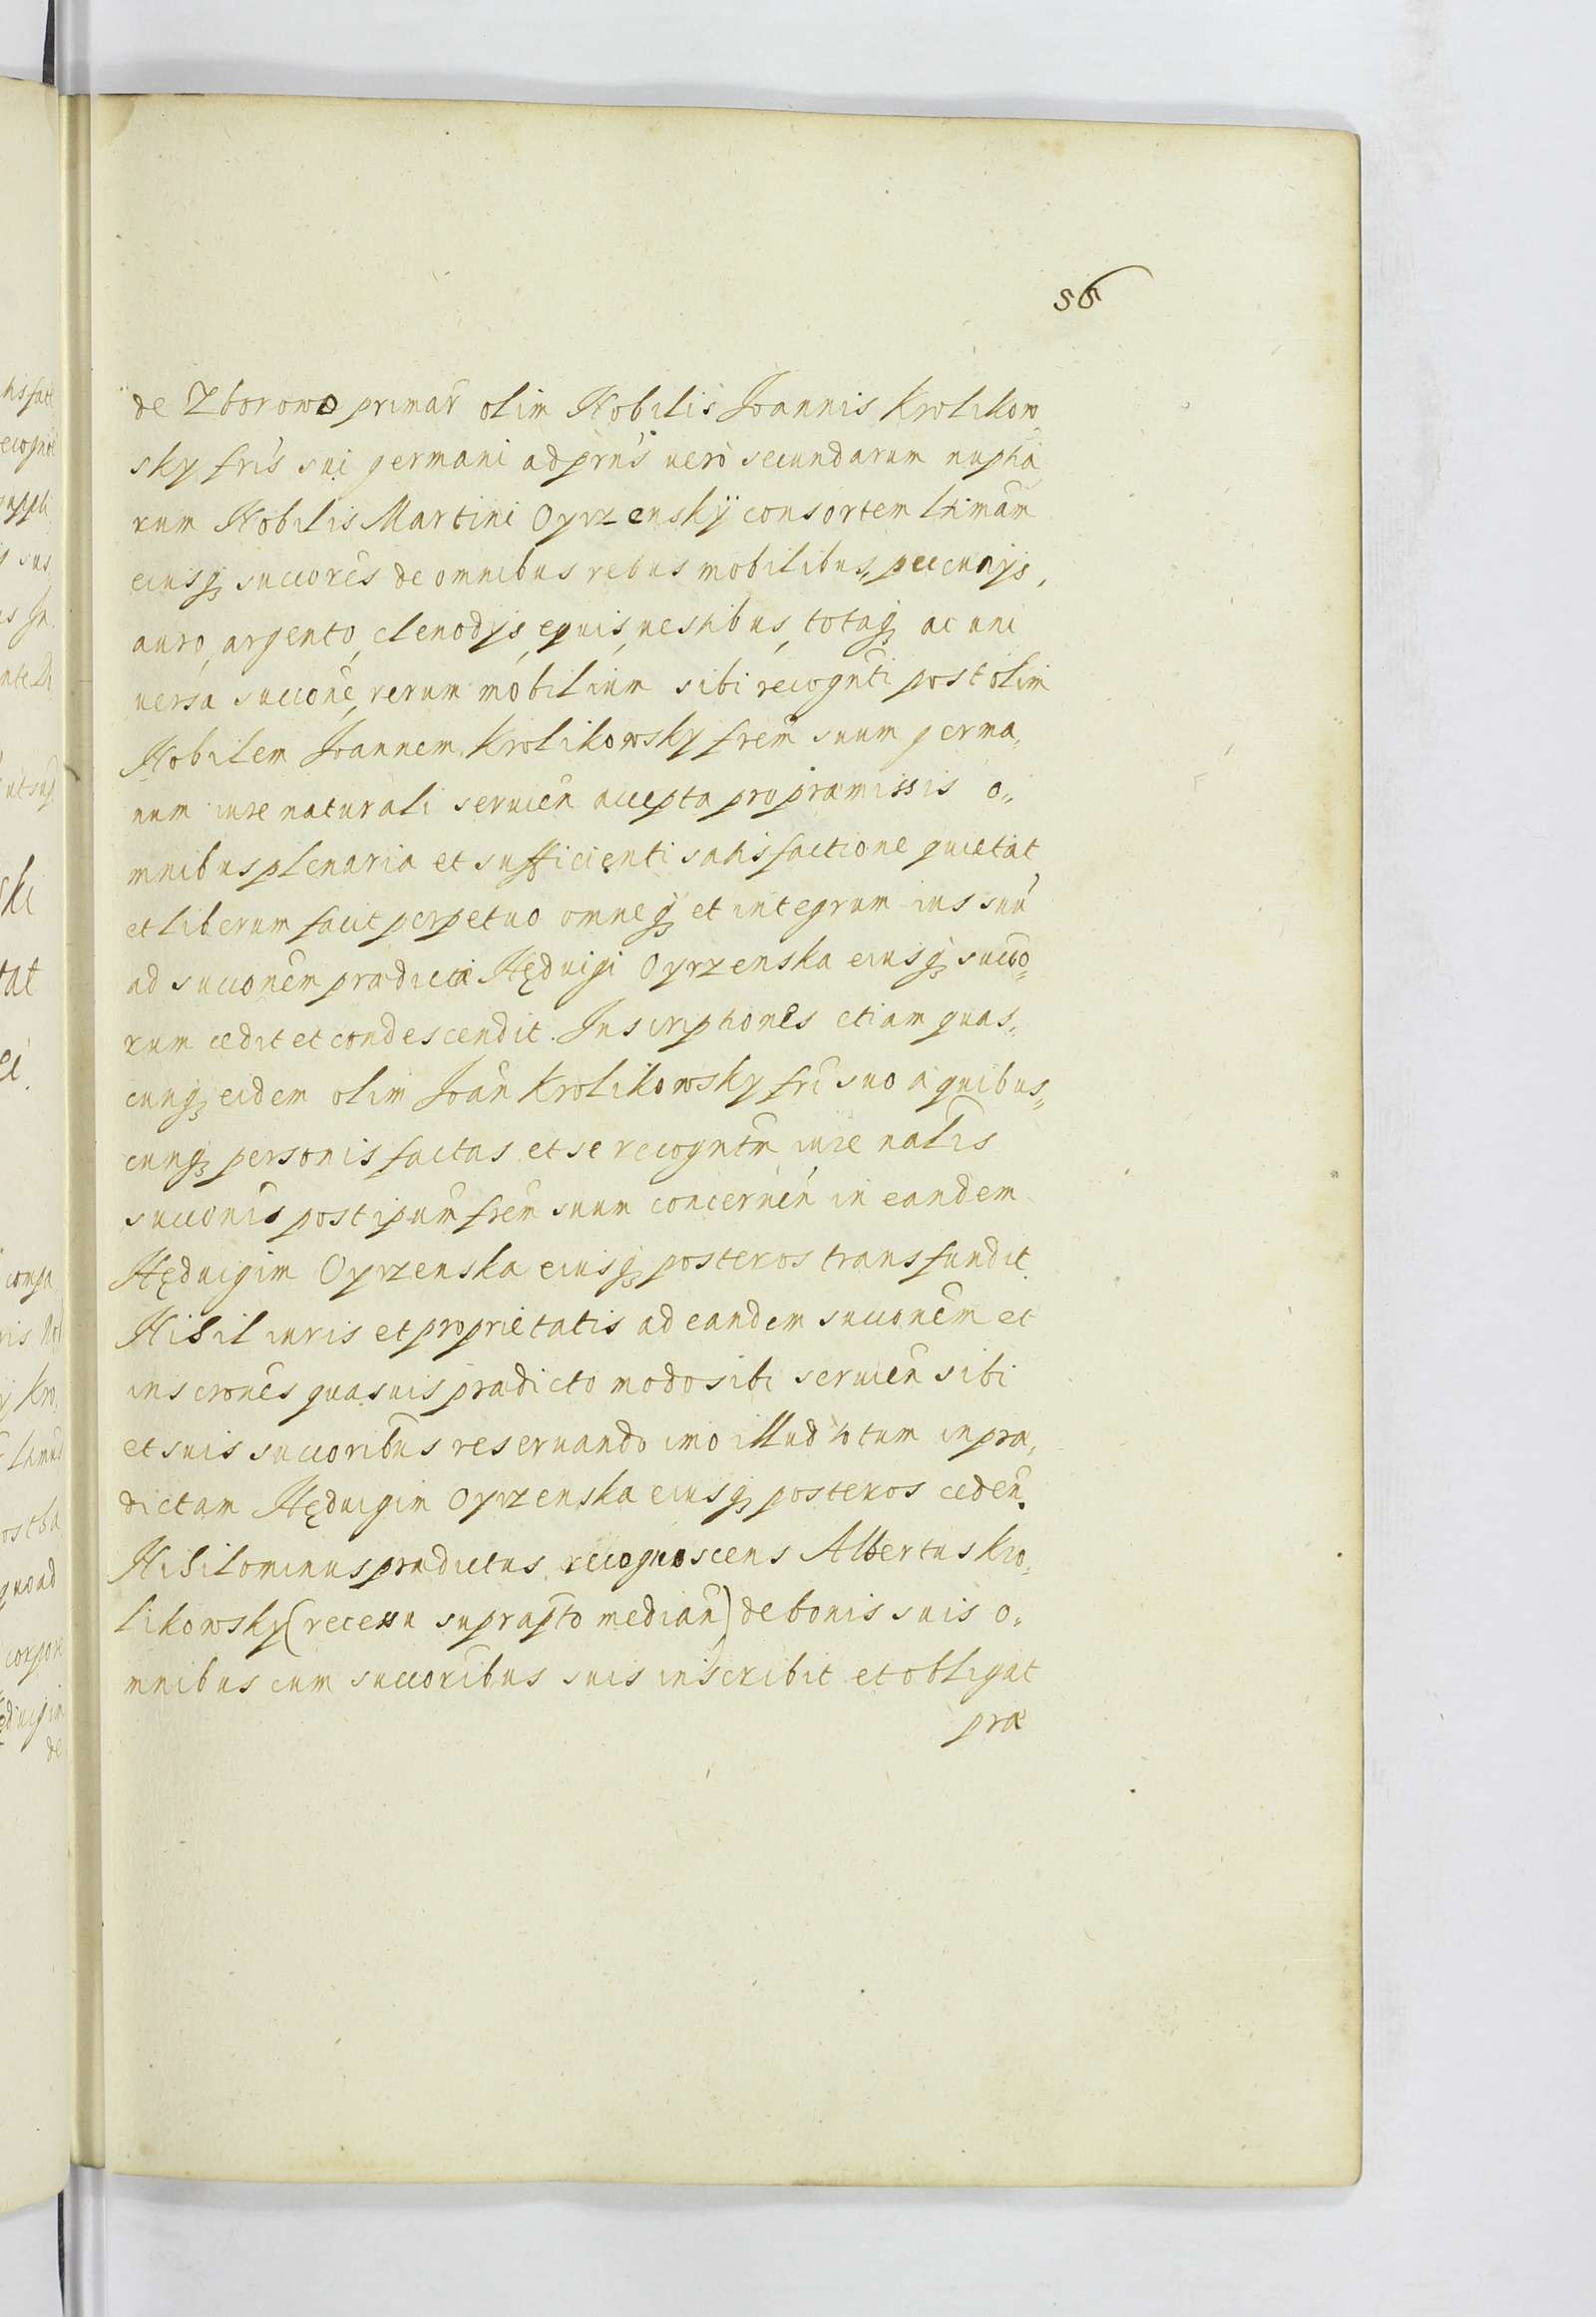 56
de Zborowo primar̃ olim Nobilis Joannis Krolikow,
sky fris̃ sui germani ad prn̄s uerò secundarum nuptia,
rum Nobilis Martini Oyrzenskÿ consortem ltimãm
eiusq̨ succores̃ de omnibus rebus mobilibus, peccunijs,
auro, argento, clenodijs, equis, uestibus, totaq̨ ac uni
uersa succonẽ, rerum mobilium sibi recogn̄ti post olim
Nobilem Joannem Krolikowsky frem̃ suum germa,
num iure naturali seruien̄ accepta pro præmissis o„
mnibus plenaria et sufficienti satisfactione quietat
et liberum facit perpetuo omneq̨ et integrum ius suũ
ad succonem̃ prædictæ Hęduigi Oyrzenska eiusq̨ succo„
rum cedit et condescendit. Inscriptiones etiam quas„
cunq̨ eidem olim Joan̄ Krolikowsky frī suo a quibus„
cunq̨ personis factas et se recogntm̄ iure nalis̄
succonis̃ post ipum̃ frem̃ suum concernen̄ in eandem
Hęduigim Oyrzenska eiusq̨ posteros transfundit.
Nihil iuris et proprietatis ad eandem succonem̃ et
inscrones̃ quasuis prædicto modo sibi seruien̄ sibi
et suis succoribus̃ reseruando imo illud totum in præ,
dictam Hęduigim Oyrzenska eiusq̨ posteros ceden̄.
Nihilominus prædictus recognoscens Albertus Kro,
likowsky (recessu suprap̃to median̄) de bonis suis o„
mnibus cum succoribus̃ suis inscribit et obligat
præ